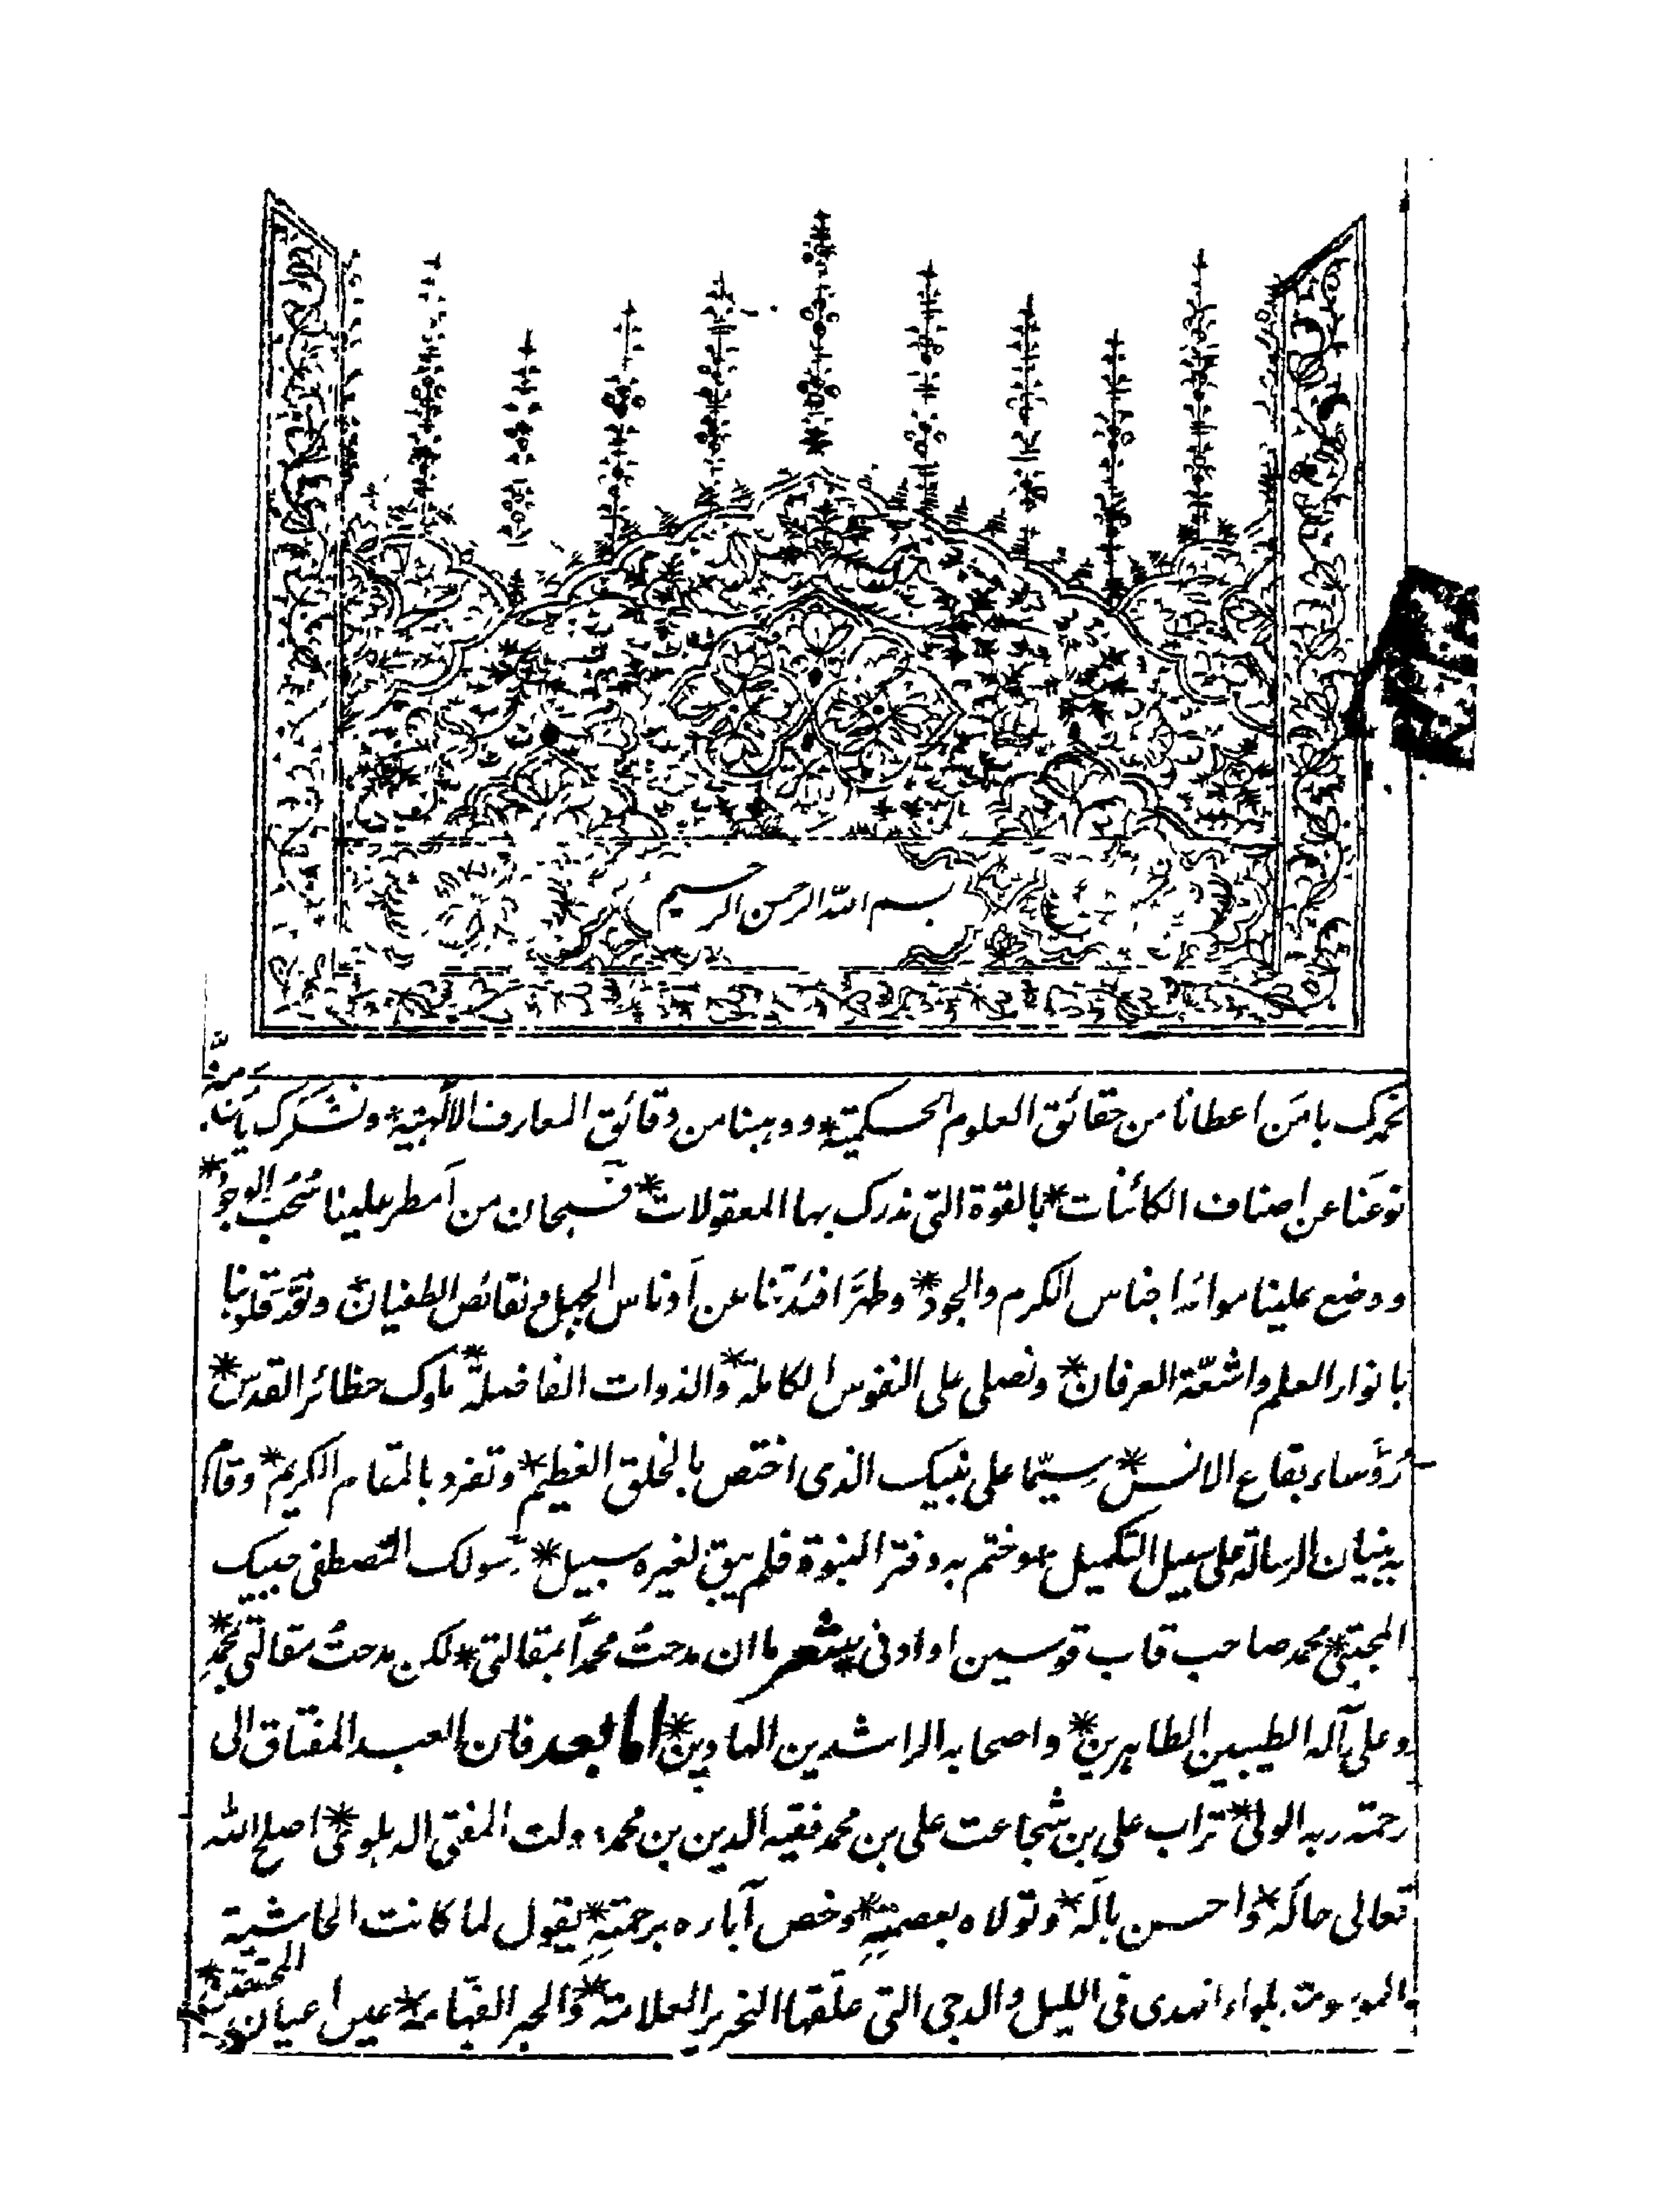 بسم الله الرحمن الرحيم
نحمدك يا من اعطانا من حقائق العلوم الحكمية * ووهبنا من دقائق المعارف الالٓهية * ونشكرك يا من مَيَّز
نوعَنا عن اصناف الكائنات * بالقوة التى ندرك بها المعقولات * فسبحان من اَمطر علينا سُحُب الوجود *
ووضع علينا موائد اجناس الكرم والجود * وطهَّر افئدتنا عن اَدناس الجهل ونقائص الطغيان * ونوَّر قلوبنا
بانوار العلم واشعّة العرفان * ونصلى على النفوس الكاملة * والذوات الفاضلة * ملوك حظائر القدس *
رُؤَساء بقاع الانس * سيّما على نبيك الذى اختص بالخلق العظيم * وتفرد بالمقام الكريم * وقام
به بنيان الرسالة على سبيل التكميل * وختم به دفتر النبوة فلم يبق لغيره سبيل * رسولك المصطفى حبيبك
المجتبى * محمد صاحب قاب قوسين او ادنى * شعر ما ان مدحتُ محمداً بمقالتى * لكن مدحتُ مقالتى بمحمدٍ *
وعلى آله الطيبين الطاهرين * واصحابه الراشدين الهادين * اما بعد فان العبد المفتاق الى
رحمة ربه الولى * تراب على بن شجاعت على بن محمد فقيه الدين بن محمد دولت المفتى الدهلوى * اصلح الله
تعالى حاله * واحسن باله * وتولاه بعصمته * وخص آباره برحمته * يقول لما كانت الحاشية
الموسومة بلواء الهدى فى الليل والدجى التى علقها النحرير العلامة * والحبر الفهامة * عين اعيان المحققين *